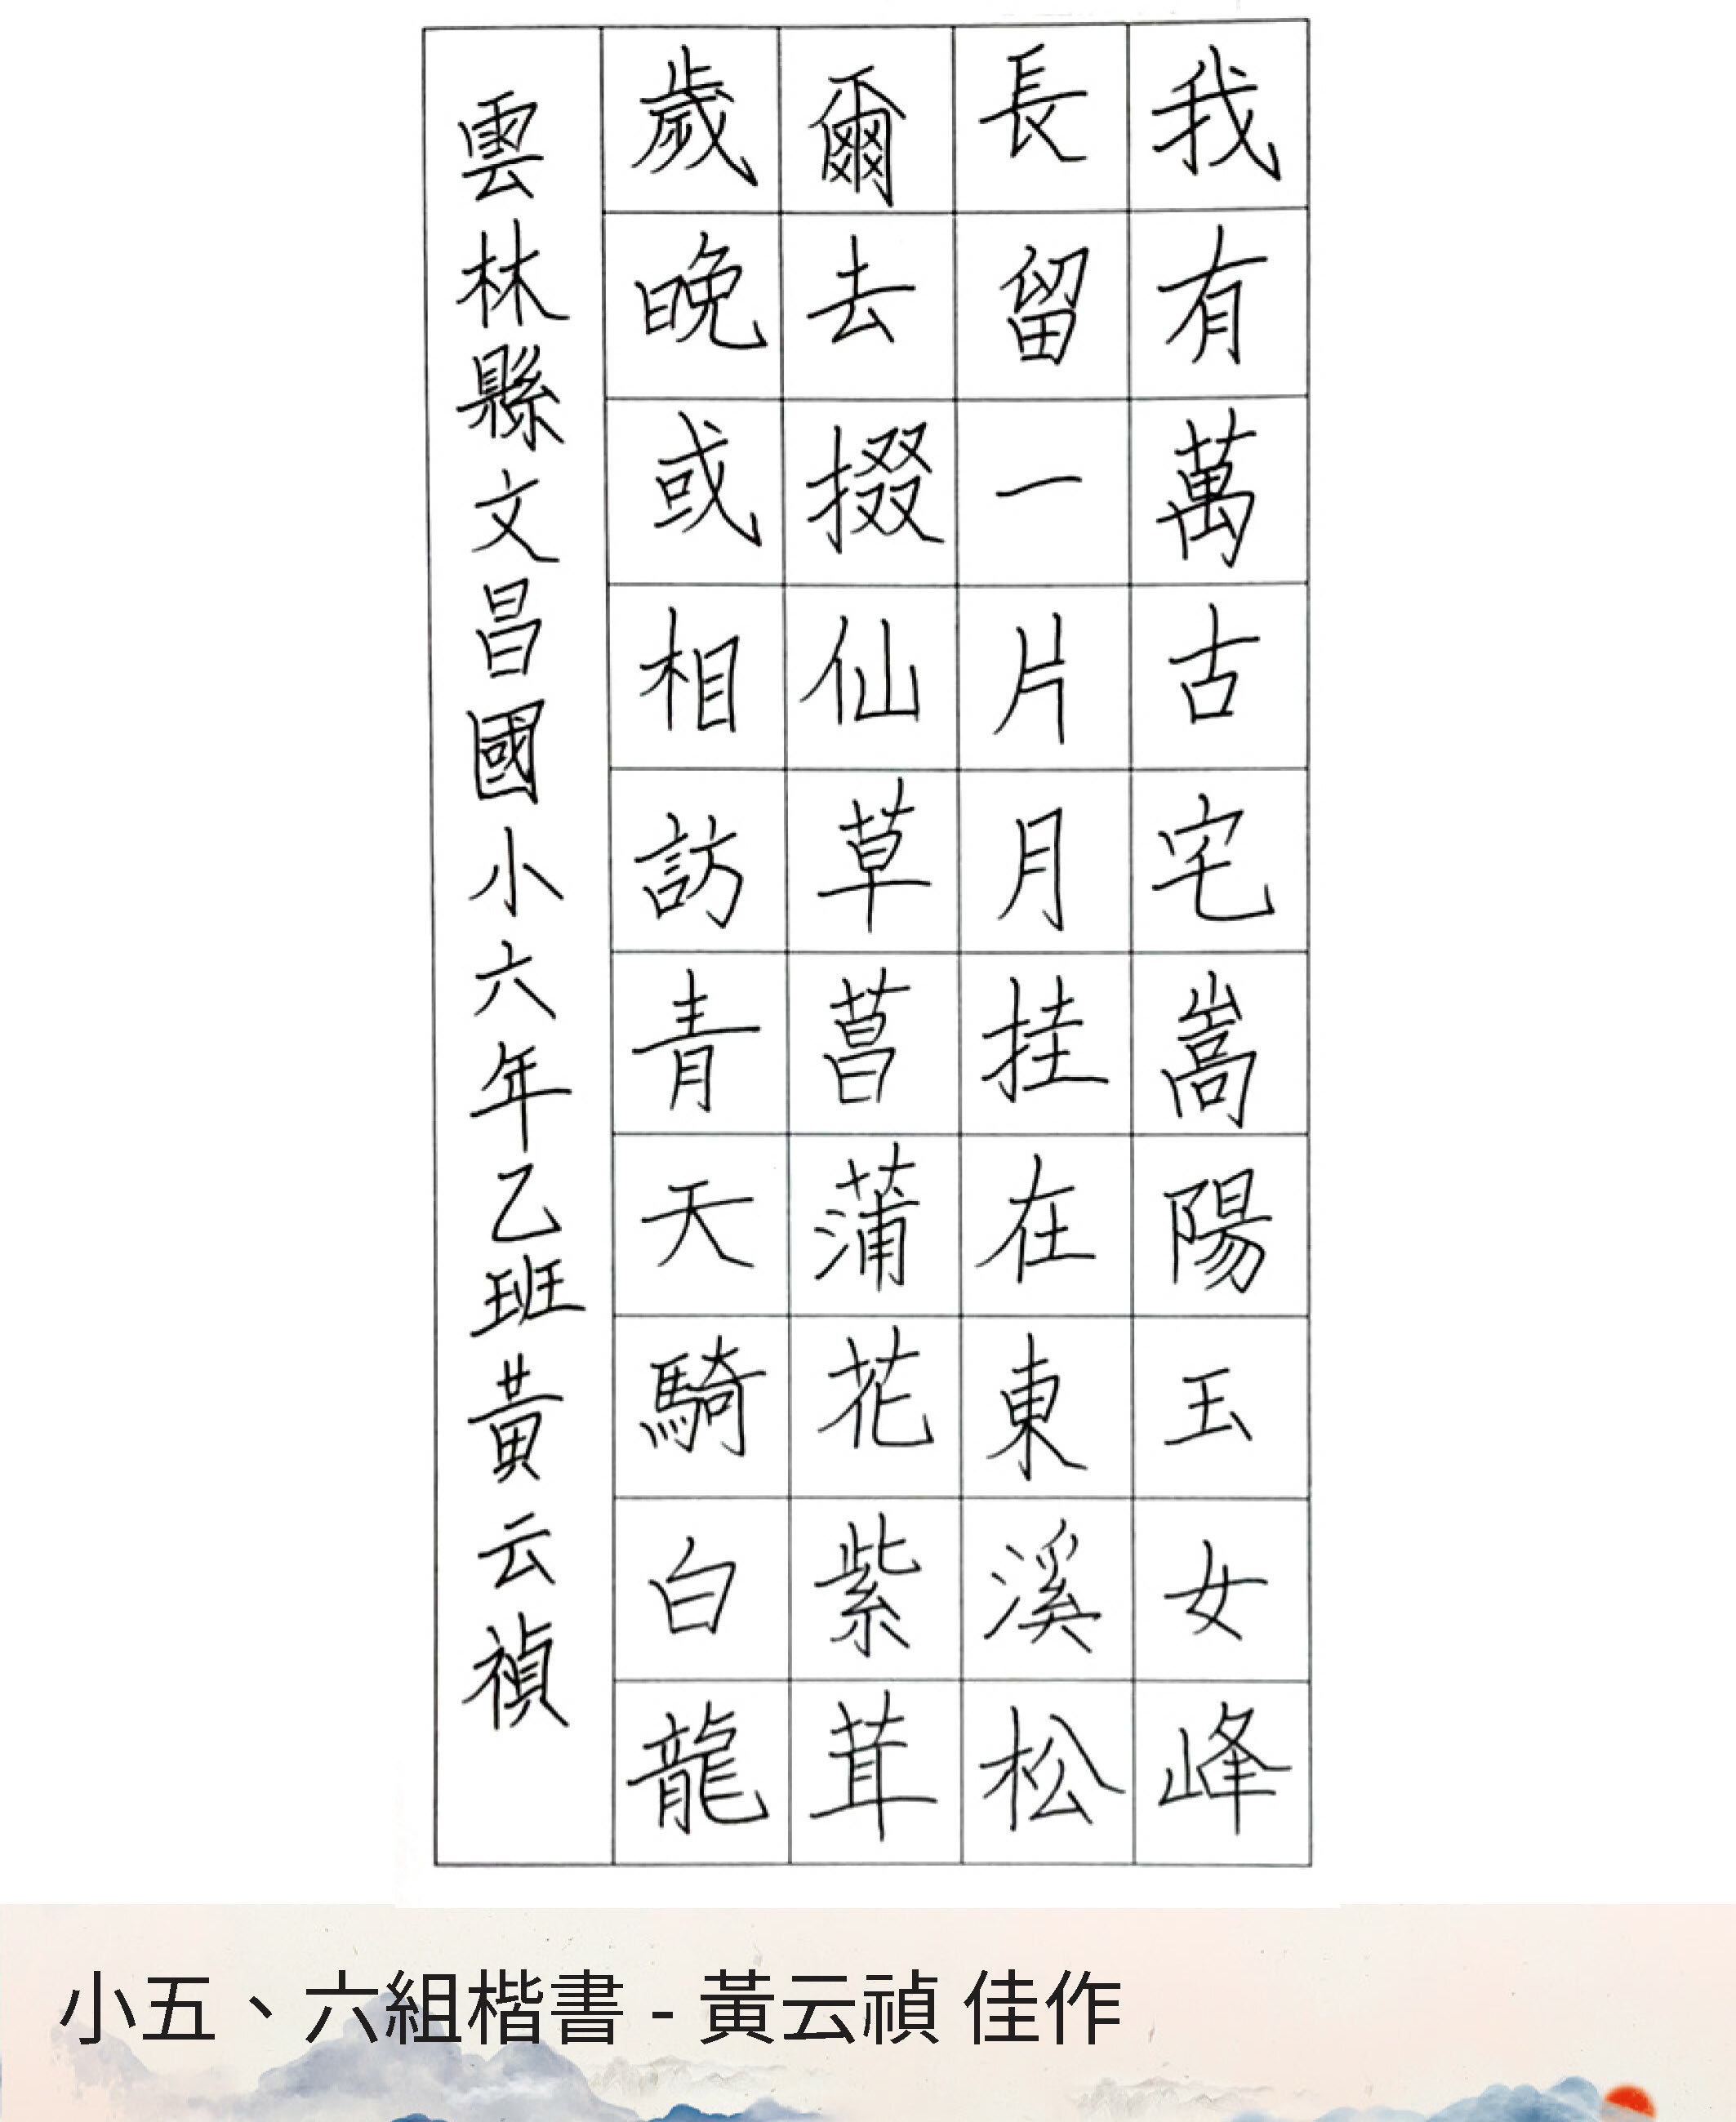 我有萬古宅嵩陽玉女峰
長留一片月挂在東溪松
爾去掇仙草菖蒲花紫茸
歲晚或相訪青天騎白龍
雲林縣文昌國小六年乙班黃云禎
小五、六組楷書 - 黃云禎 佳作